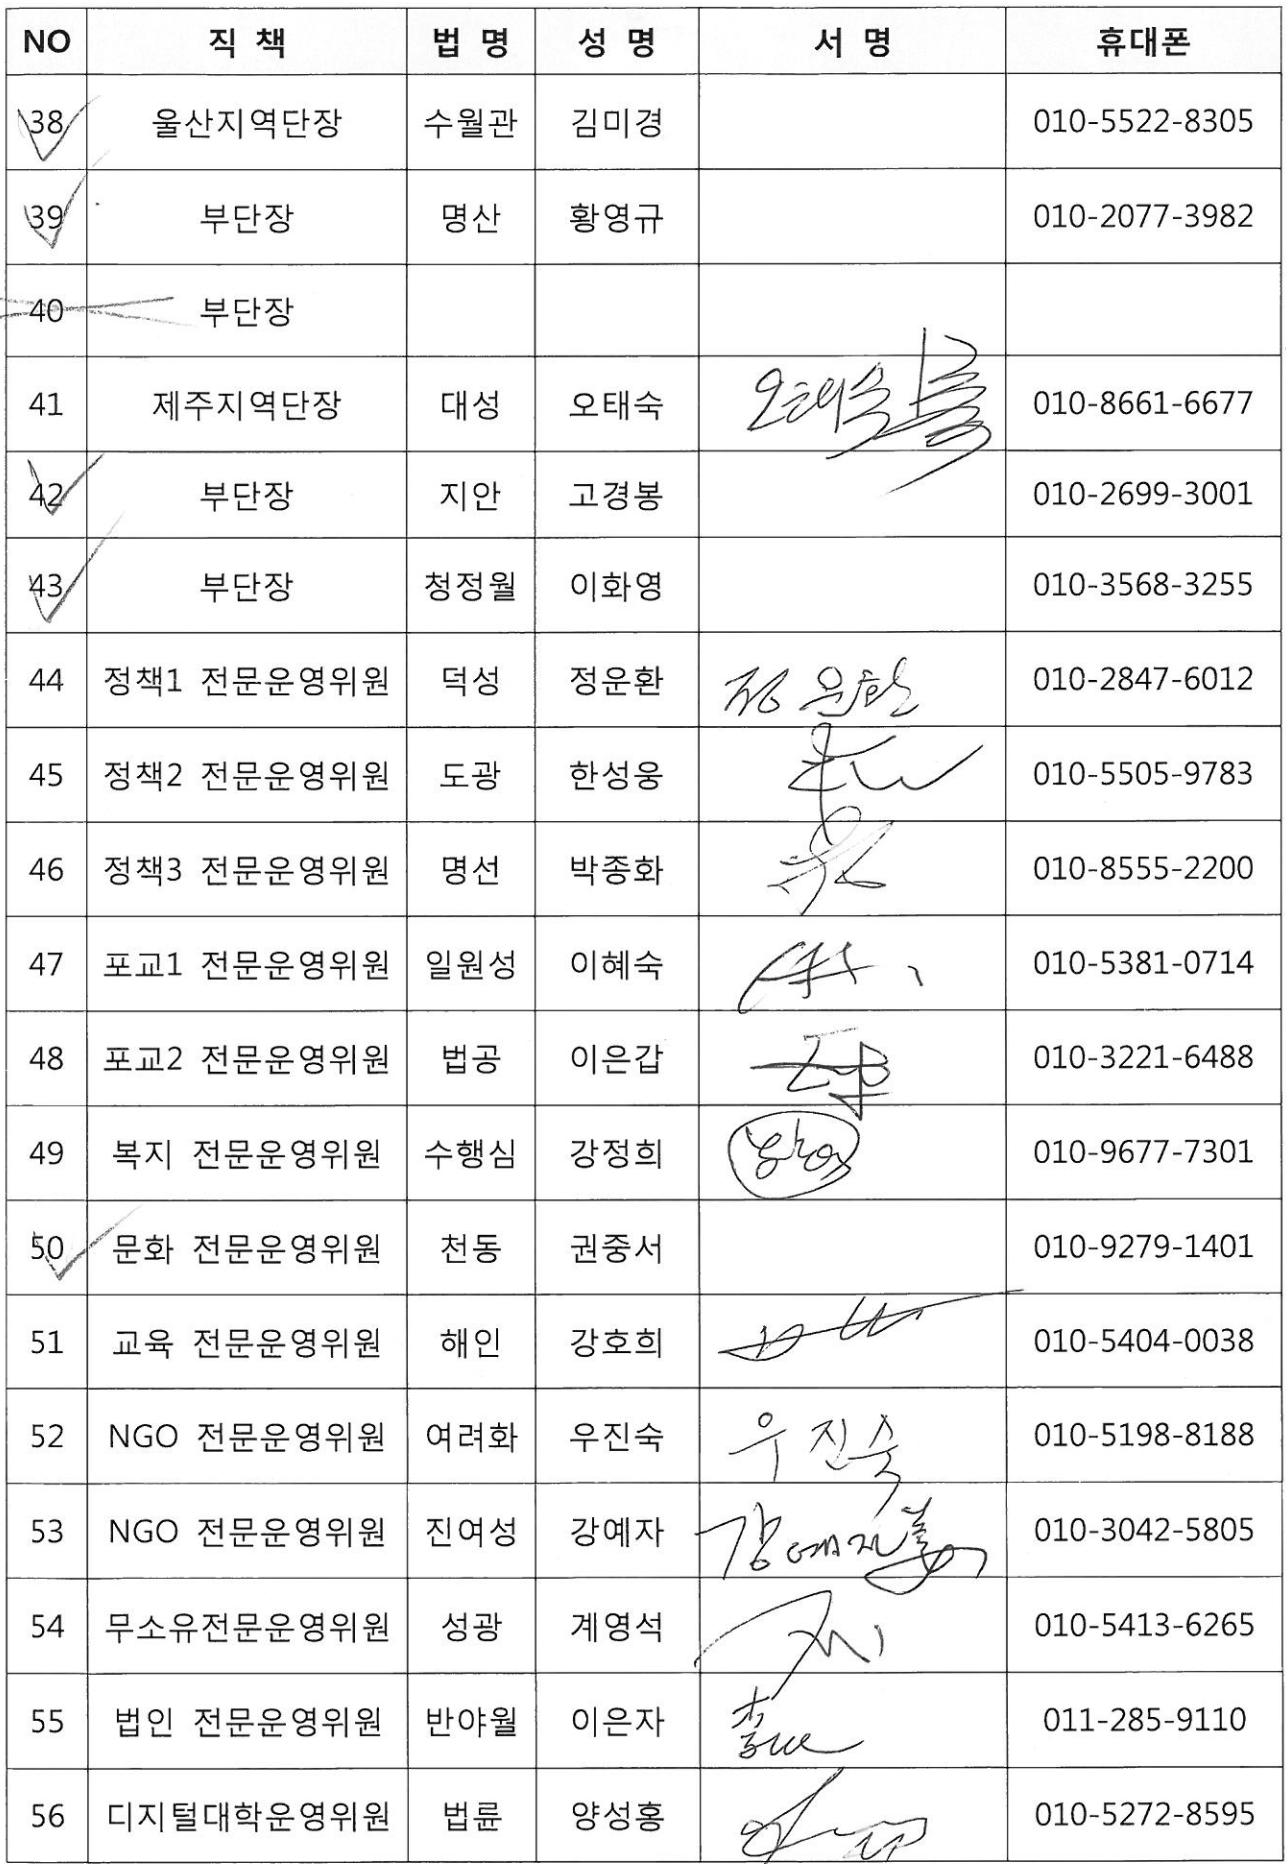 NO 직 책 법 명 성 명 서 명 휴대폰
38 울산지역단장 수월관 김미경 010-5522-8305
39 부단장 명산 황영규 010-2077-3982
40 부단장
41 제주지역단장 대성 오태숙 오태숙 010-8661-6677
42 부단장 지안 고경봉 010-2699-3001
43 부단장 청정월 이화영 010-3568-3255
44 정책1 전문운영위원 덕성 정운환 정운환 010-2847-6012
45 정책2 전문운영위원 도광 한성웅 010-5505-9783
46 정책3 전문운영위원 명선 박종화 010-8555-2200
47 포교1 전문운영위원 일원성 이혜숙 010-5381-0714
48 포교2 전문운영위원 법공 이은갑 010-3221-6488
49 복지 전문운영위원 수행심 강정희 010-9677-7301
50 문화 전문운영위원 천동 권중서 010-9279-1401
51 교육 전문운영위원 해인 강호희 010-5404-0038
52 NGO 전문운영위원 여려화 우진숙 우진숙 010-5198-8188
53 NGO 전문운영위원 진여성 강예자 강예자 010-3042-5805
54 무소유전문운영위원 성광 계영석 010-5413-6265
55 법인 전문운영위원 반야월 이은자 011-285-9110
56 디지털대학운영위원 법륜 양성홍 010-5272-8595